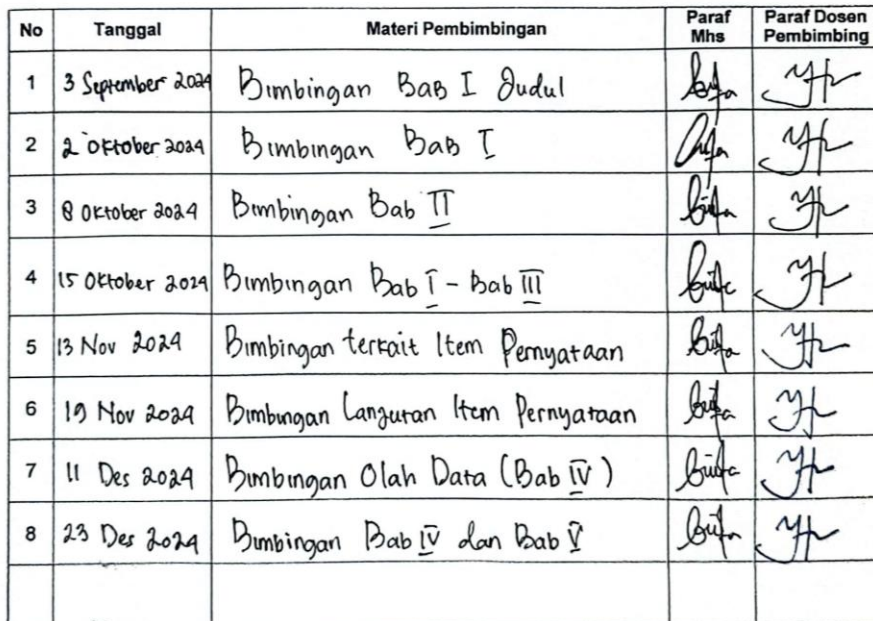 No Tanggal Materi Pembimbingan Paraf Mhs Paraf Dosen Pembimbing
1 3 September 2024 Bimbingan Bab I Judul
2 2 Oktober 2024 Bimbingan Bab I
3 8 Oktober 2024 Bimbingan Bab II
4 15 Oktober 2024 Bimbingan Bab I - Bab III
5 13 Nov 2024 Bimbingan terkait Item Pernyataan
6 19 Nov 2024 Bimbingan Lanjutan Item Pernyataan
7 11 Des 2024 Bimbingan Olah Data (Bab IV)
8 23 Des 2024 Bimbingan Bab IV dan Bab V